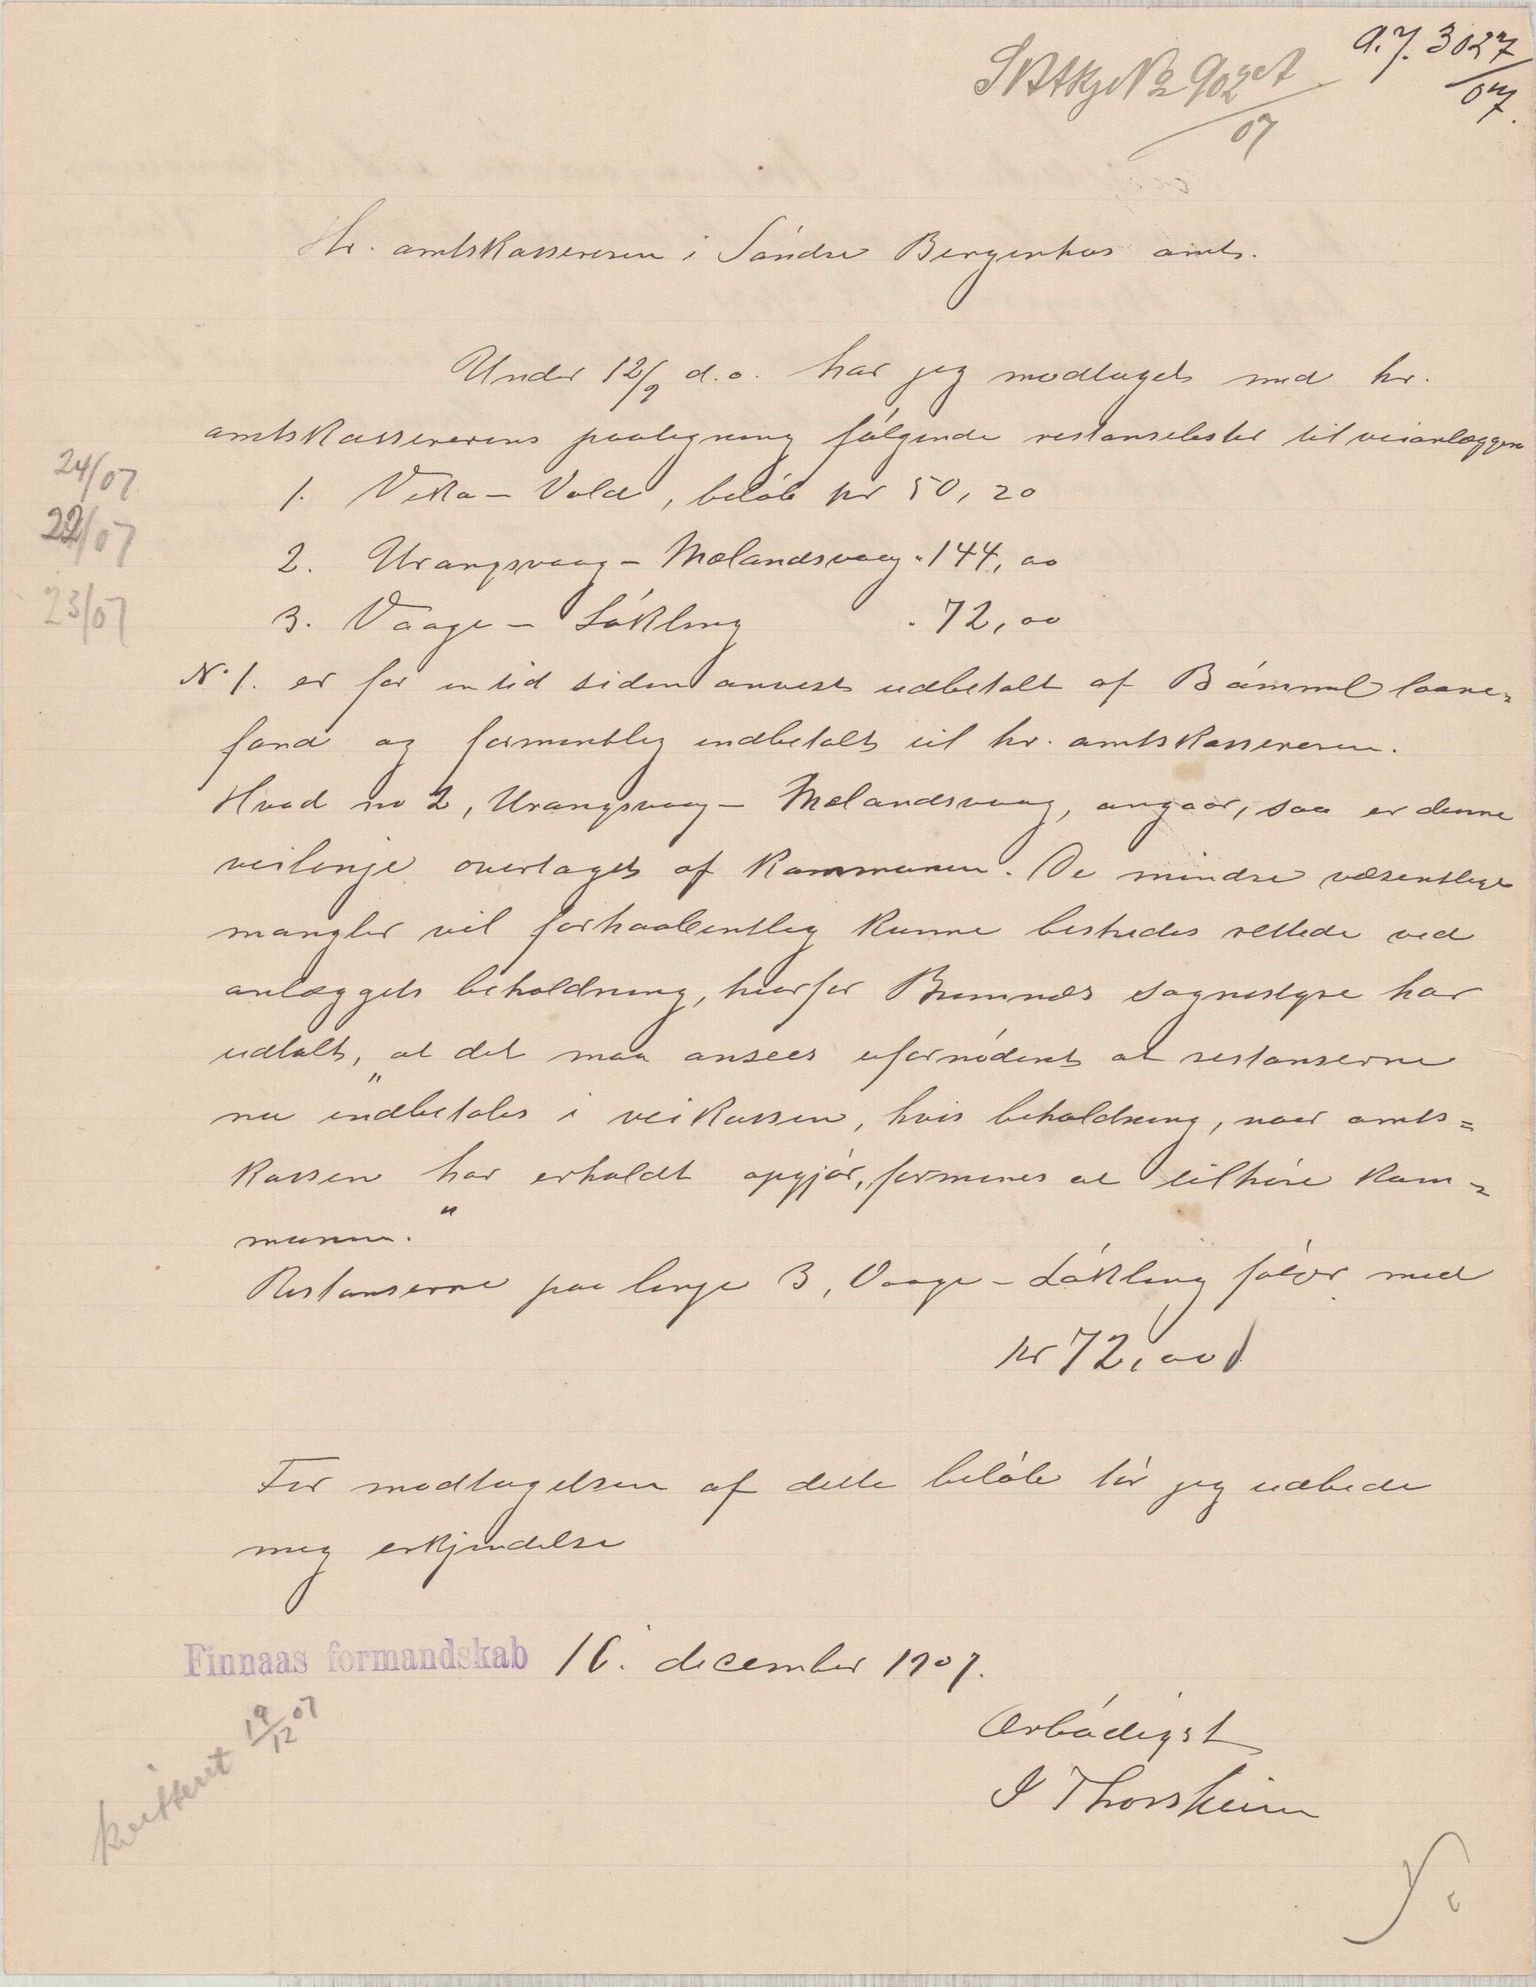 a.J. 3027/07.
902/07
Hr. amtskassereren i Söndre Bergenhus amt.
Under 12/9 d.a. har jeg modtaget med hr.
amtskassererens paategning følgende restanselister til veianlæggene
24/07
1. Vika – Vold, beløb kr 50,20
22/07
2. Urangsvaag – Mælandsvaag " 144,00
23/07
3. Vaage – Løkling " 72,00
No 1. er for en tid siden anvist udbetalt af Bømmel laane=
fond og formentlig indbetalt til hr. amtskassereren.
Hvad no 2, Urangsvaag – Mælandsvaag, angaar, saa er denne
veilinje overtaget af kommunen. De mindre væsentlige
mangler vil forhaabentlig kunne bestrides rettede ved
anlæggets beholdning, hvorfor Bremnes sognestyre har
udtalt, "at det maa ansees ufornødent at restanserne
nu indbetales i veikassen, hvis beholdning, naar amts=
kassen har erholdt opgjør, formenes at tilhøre kom=
munen."
Restanserne paa linje 3, Vaage – Løkling følger med
kr 72,00
For modtagelsen af dette beløb tør jeg udbede
mig erkjendelse
Finnaas formandskab 16. december 1907.
Ærbødigst
J Thorsheim
kvitteret 19/12 07